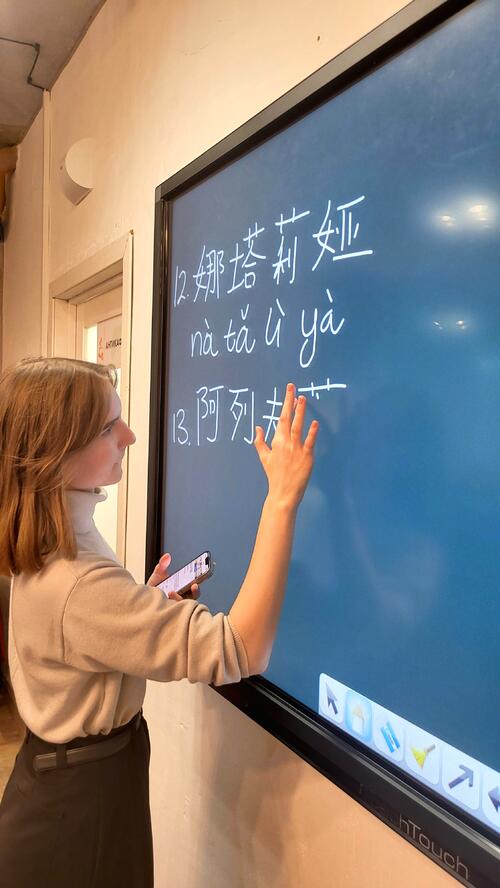 12. 娜塔莉娅
nà tǎ lì yà
13. 阿列
Touch